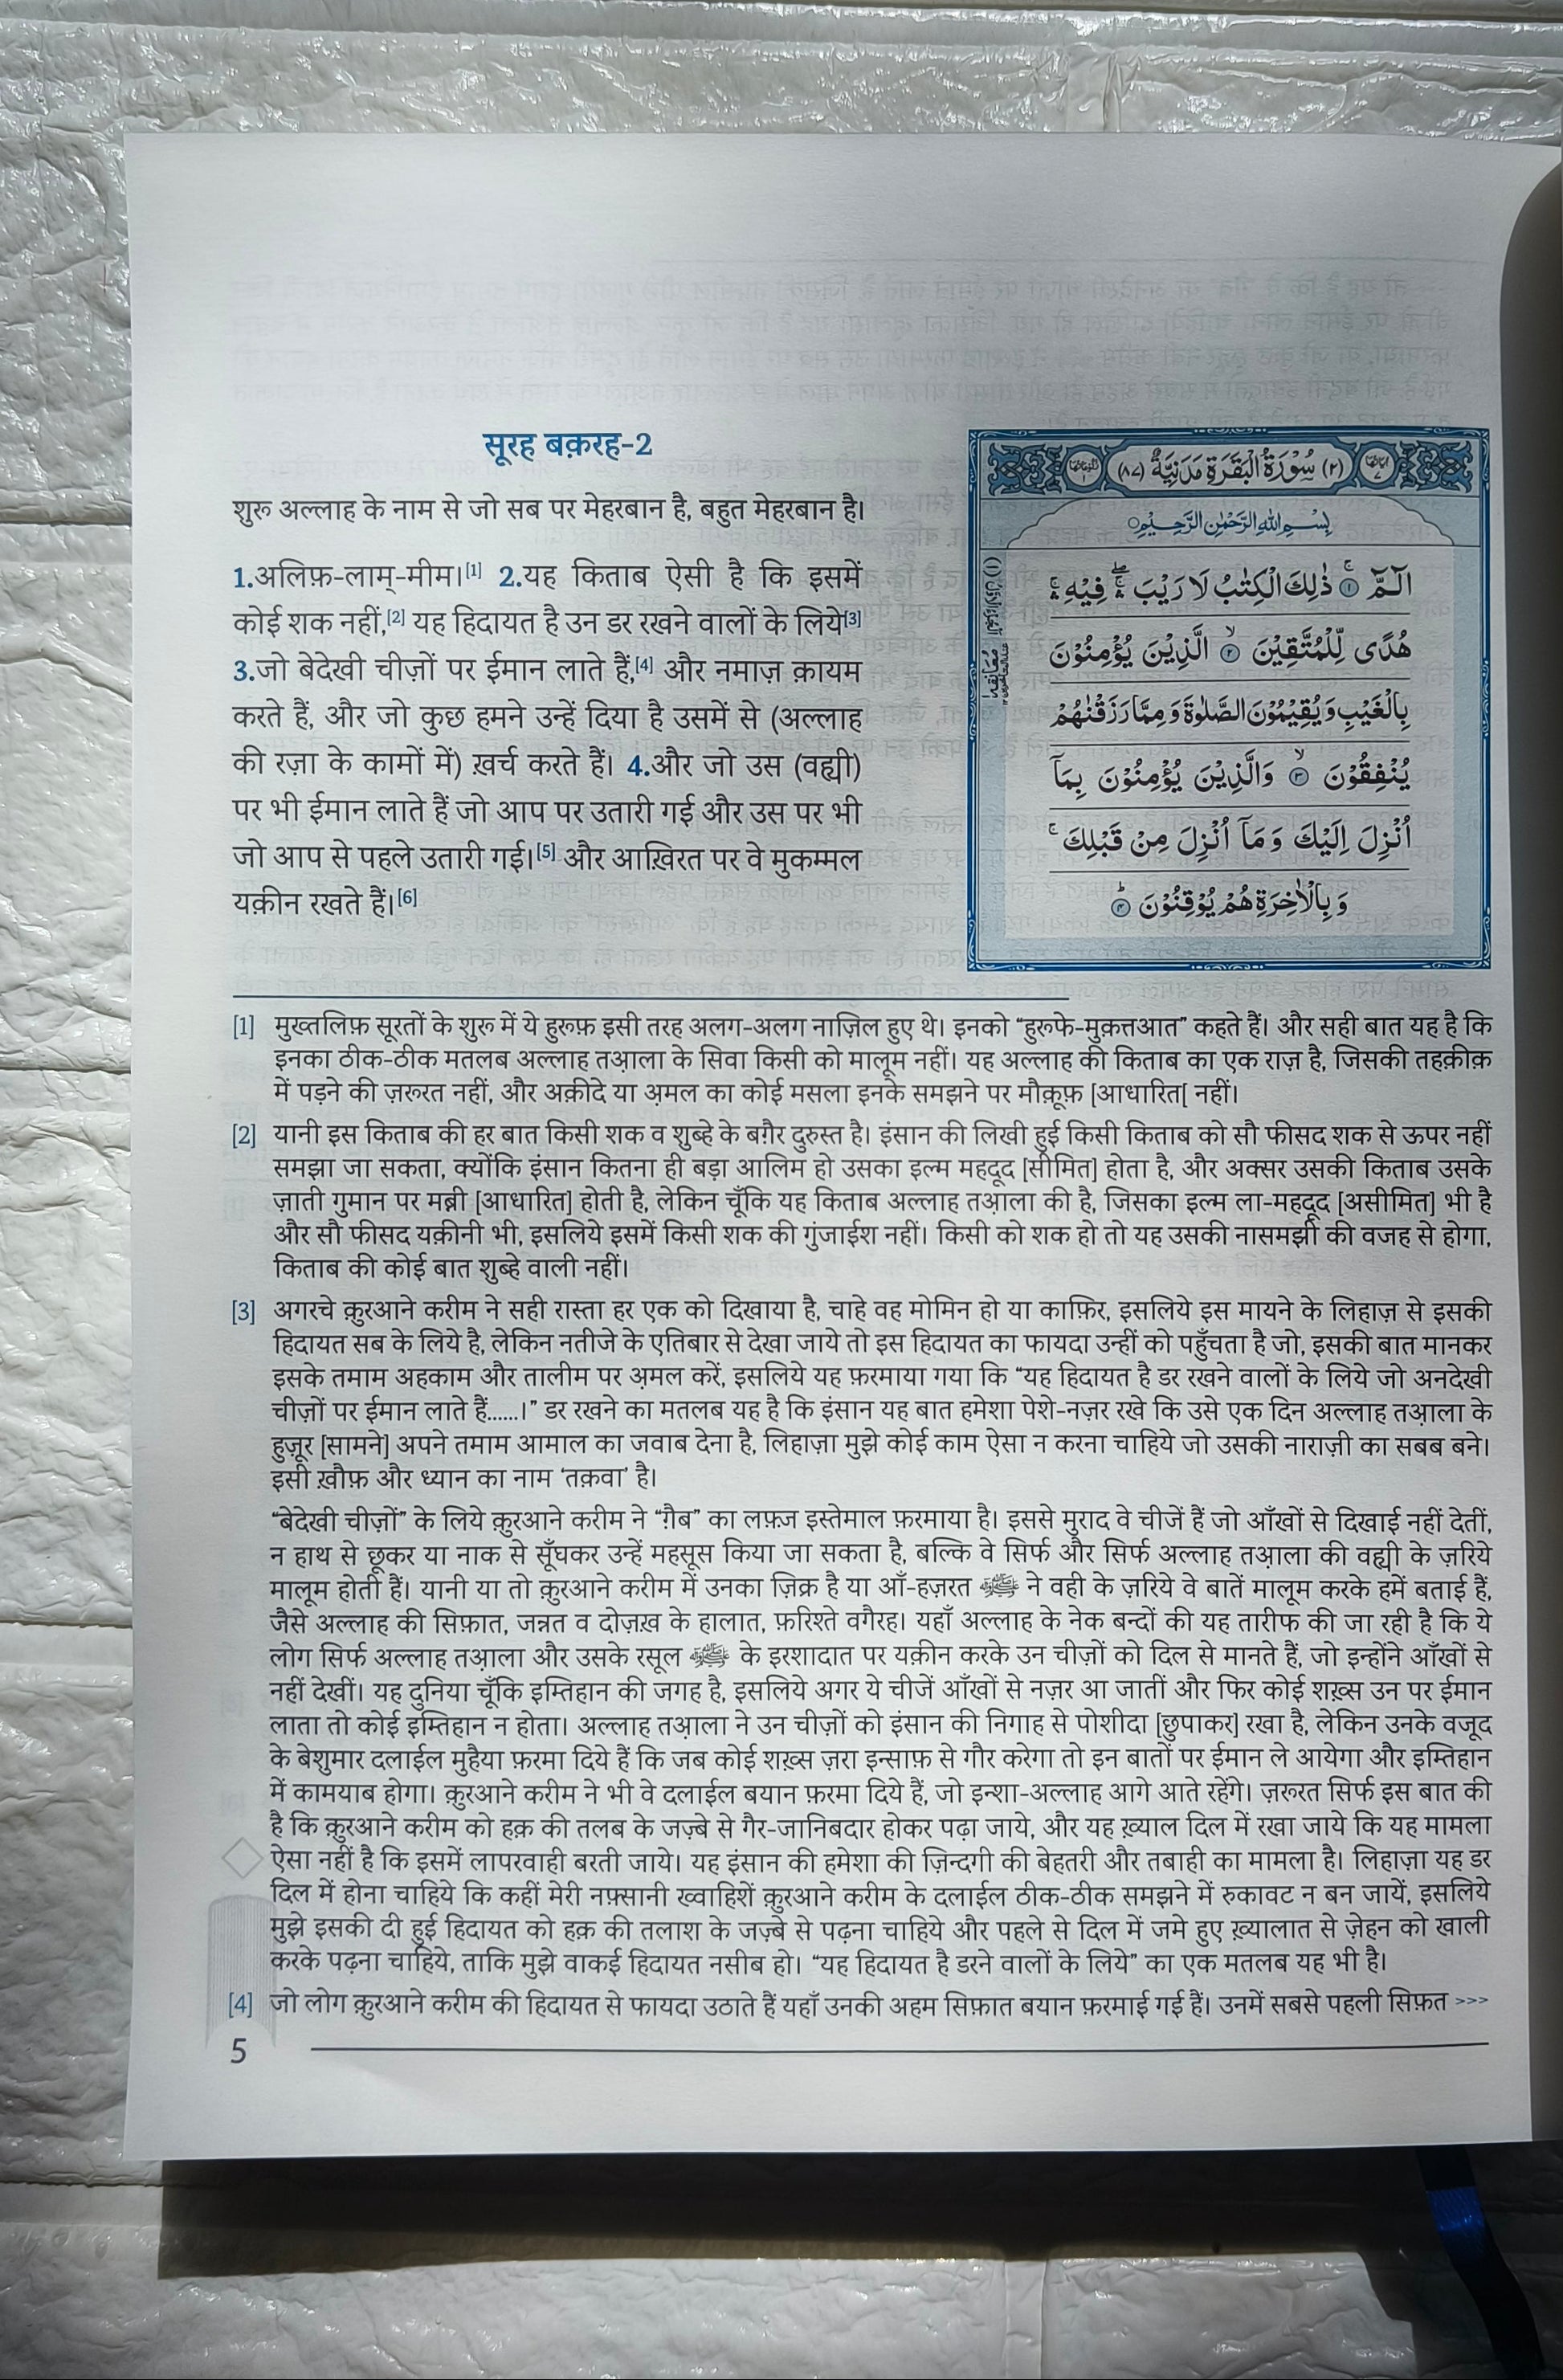 सूरह बक़रह-2
शुरू अल्लाह के नाम से जो सब पर मेहरबान है, बहुत मेहरबान है।
1.अलिफ़-लाम्-मीम।[1] 2.यह किताब ऐसी है कि इसमें
कोई शक नहीं,[2] यह हिदायत है उन डर रखने वालों के लिये[3]
3.जो बेदेखी चीज़ों पर ईमान लाते हैं,[4] और नमाज़ क़ायम
करते हैं, और जो कुछ हमने उन्हें दिया है उसमें से (अल्लाह
की रज़ा के कामों में) ख़र्च करते हैं। 4.और जो उस (वह्यी)
पर भी ईमान लाते हैं जो आप पर उतारी गई और उस पर भी
जो आप से पहले उतारी गई।[5] और आख़िरत पर वे मुकम्मल
यक़ीन रखते हैं।[6]
(٢) سُوْرَةُ الْبَقَرَةِ مَدَنِيَّةٌ (٨٧)
بِسْمِ اللهِ الرَّحْمٰنِ الرَّحِيْمِ
الٓمّٓ ۚ ۝١ ذٰلِكَ الْكِتٰبُ لَا رَيْبَ ۛۖ فِيْهِ ۛۚ
هُدًى لِّلْمُتَّقِيْنَ ۙ ۝٢ الَّذِيْنَ يُؤْمِنُوْنَ
بِالْغَيْبِ وَيُقِيْمُوْنَ الصَّلٰوةَ وَمِمَّا رَزَقْنٰهُمْ
يُنْفِقُوْنَ ۙ ۝٣ وَالَّذِيْنَ يُؤْمِنُوْنَ بِمَآ
اُنْزِلَ اِلَيْكَ وَمَآ اُنْزِلَ مِنْ قَبْلِكَ ۚ
وَبِالْاٰخِرَةِ هُمْ يُوْقِنُوْنَ ؕ ۝٤
[1] मुख्तलिफ़ सूरतों के शुरू में ये हुरूफ़ इसी तरह अलग-अलग नाज़िल हुए थे। इनको “हुरूफे-मुक़त्तआत” कहते हैं। और सही बात यह है कि
इनका ठीक-ठीक मतलब अल्लाह तआ़ला के सिवा किसी को मालूम नहीं। यह अल्लाह की किताब का एक राज़ है, जिसकी तहक़ीक़
में पड़ने की ज़रूरत नहीं, और अक़ीदे या अ़मल का कोई मसला इनके समझने पर मौक़ूफ़ [आधारित[ नहीं।
[2] यानी इस किताब की हर बात किसी शक व शुब्हे के बग़ैर दुरुस्त है। इंसान की लिखी हुई किसी किताब को सौ फीसद शक से ऊपर नहीं
समझा जा सकता, क्योंकि इंसान कितना ही बड़ा आलिम हो उसका इल्म महदूद [सीमित] होता है, और अक्सर उसकी किताब उसके
ज़ाती गुमान पर मब्नी [आधारित] होती है, लेकिन चूँकि यह किताब अल्लाह तआ़ला की है, जिसका इल्म ला-महदूद [असीमित] भी है
और सौ फीसद यक़ीनी भी, इसलिये इसमें किसी शक की गुंजाईश नहीं। किसी को शक हो तो यह उसकी नासमझी की वजह से होगा,
किताब की कोई बात शुब्हे वाली नहीं।
[3] अगरचे क़ुरआने करीम ने सही रास्ता हर एक को दिखाया है, चाहे वह मोमिन हो या काफ़िर, इसलिये इस मायने के लिहाज़ से इसकी
हिदायत सब के लिये है, लेकिन नतीजे के एतिबार से देखा जाये तो इस हिदायत का फायदा उन्हीं को पहुँचता है जो, इसकी बात मानकर
इसके तमाम अहकाम और तालीम पर अ़मल करें, इसलिये यह फ़रमाया गया कि “यह हिदायत है डर रखने वालों के लिये जो अनदेखी
चीज़ों पर ईमान लाते हैं......।” डर रखने का मतलब यह है कि इंसान यह बात हमेशा पेशे-नज़र रखे कि उसे एक दिन अल्लाह तआ़ला के
हुज़ूर [सामने] अपने तमाम आमाल का जवाब देना है, लिहाज़ा मुझे कोई काम ऐसा न करना चाहिये जो उसकी नाराज़ी का सबब बने।
इसी ख़ौफ़ और ध्यान का नाम ‘तक़वा’ है।
“बेदेखी चीज़ों” के लिये क़ुरआने करीम ने “ग़ैब” का लफ़्ज इस्तेमाल फ़रमाया है। इससे मुराद वे चीजें हैं जो आँखों से दिखाई नहीं देतीं,
न हाथ से छूकर या नाक से सूँघकर उन्हें महसूस किया जा सकता है, बल्कि वे सिर्फ और सिर्फ अल्लाह तआ़ला की वह्यी के ज़रिये
मालूम होती हैं। यानी या तो क़ुरआने करीम में उनका ज़िक्र है या आँ-हज़रत ﷺ ने वही के ज़रिये वे बातें मालूम करके हमें बताई हैं,
जैसे अल्लाह की सिफ़ात, जन्नत व दोज़ख़ के हालात, फ़रिश्ते वगैरह। यहाँ अल्लाह के नेक बन्दों की यह तारीफ की जा रही है कि ये
लोग सिर्फ अल्लाह तआ़ला और उसके रसूल ﷺ के इरशादात पर यक़ीन करके उन चीज़ों को दिल से मानते हैं, जो इन्होंने आँखों से
नहीं देखीं। यह दुनिया चूँकि इम्तिहान की जगह है, इसलिये अगर ये चीजें आँखों से नज़र आ जातीं और फिर कोई शख़्स उन पर ईमान
लाता तो कोई इम्तिहान न होता। अल्लाह तआ़ला ने उन चीज़ों को इंसान की निगाह से पोशीदा [छुपाकर] रखा है, लेकिन उनके वजूद
के बेशुमार दलाईल मुहैया फ़रमा दिये हैं कि जब कोई शख़्स ज़रा इन्साफ़ से गौर करेगा तो इन बातों पर ईमान ले आयेगा और इम्तिहान
में कामयाब होगा। क़ुरआने करीम ने भी वे दलाईल बयान फ़रमा दिये हैं, जो इन्शा-अल्लाह आगे आते रहेंगे। ज़रूरत सिर्फ इस बात की
है कि क़ुरआने करीम को हक़ की तलब के जज़्बे से गैर-जानिबदार होकर पढ़ा जाये, और यह ख़्याल दिल में रखा जाये कि यह मामला
ऐसा नहीं है कि इसमें लापरवाही बरती जाये। यह इंसान की हमेशा की ज़िन्दगी की बेहतरी और तबाही का मामला है। लिहाज़ा यह डर
दिल में होना चाहिये कि कहीं मेरी नफ़्सानी ख्वाहिशें क़ुरआने करीम के दलाईल ठीक-ठीक समझने में रुकावट न बन जायें, इसलिये
मुझे इसकी दी हुई हिदायत को हक़ की तलाश के जज़्बे से पढ़ना चाहिये और पहले से दिल में जमे हुए ख़्यालात से ज़ेहन को खाली
करके पढ़ना चाहिये, ताकि मुझे वाकई हिदायत नसीब हो। “यह हिदायत है डरने वालों के लिये” का एक मतलब यह भी है।
[4] जो लोग क़ुरआने करीम की हिदायत से फायदा उठाते हैं यहाँ उनकी अहम सिफ़ात बयान फ़रमाई गई हैं। उनमें सबसे पहली सिफ़त >>>
5